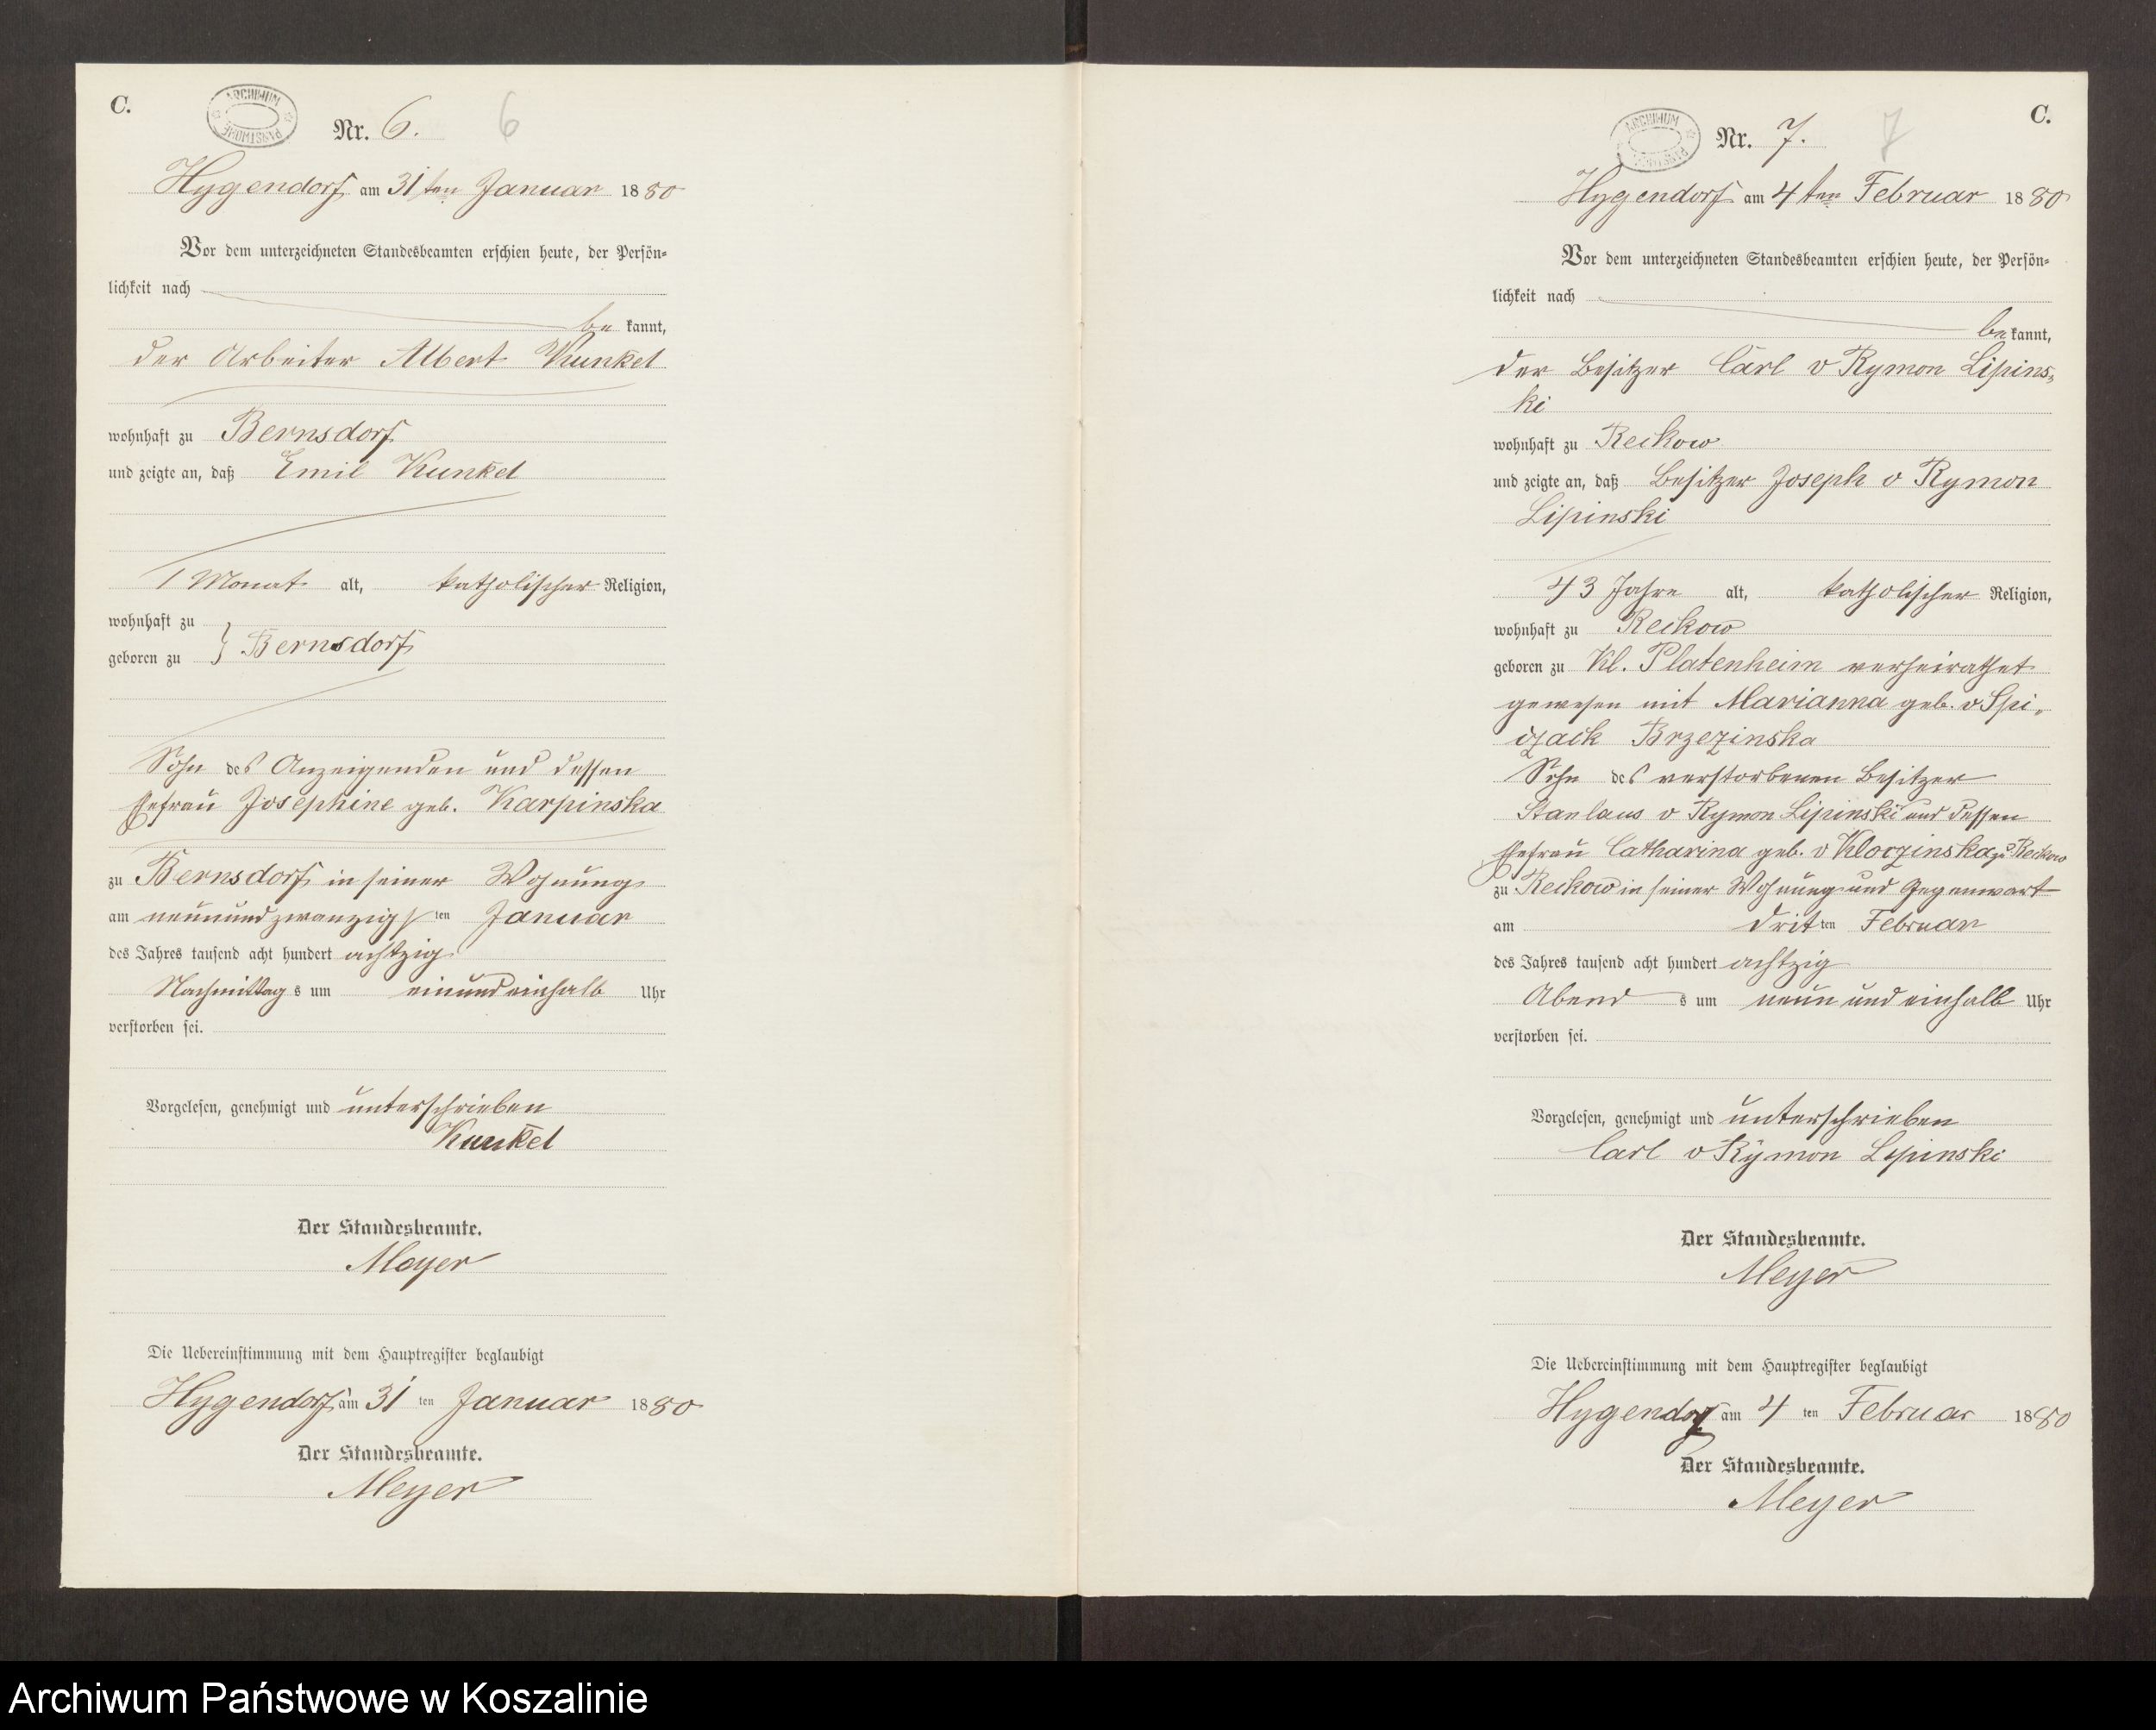 C.
ARCHIWUM PAŃSTWOWE
Nr. 6. 6
Hygendorf am 31ten Januar 1880
Vor dem unterzeichneten Standesbeamten erschien heute, der Persön-
lichkeit nach
be kannt,
der Arbeiter Albert Kunkel
wohnhaft zu Bernsdorf
und zeigte an, daß Emil Kunkel
1 Monat alt, katholischer Religion,
wohnhaft zu
geboren zu } Bernsdorf
Sohn des Anzeigenden und dessen
Ehefrau Josephine geb. Karpinska
zu Bernsdorf in seiner Wohnung
am neunundzwanzigsten Januar
des Jahres tausend acht hundert achtzig
Nachmittag s um einundeinhalb Uhr
verstorben sei.
Vorgelesen, genehmigt und unterschrieben
Kunkel
Der Standesbeamte.
Meyer
Die Uebereinstimmung mit dem Hauptregister beglaubigt
Hygendorf am 31 ten Januar 1880
Der Standesbeamte.
Meyer
C.
ARCHIWUM PAŃSTWOWE
Nr. 7. 7
Hygendorf am 4ten Februar 1880
Vor dem unterzeichneten Standesbeamten erschien heute, der Persön-
lichkeit nach
be kannt,
der Besitzer Carl v Rymon Lipins-
ki
wohnhaft zu Reckow
und zeigte an, daß Besitzer Joseph v Rymon
Lipinski
43 Jahre alt, katholischer Religion,
wohnhaft zu Reckow
geboren zu Kl. Platenheim verheirathet
gewesen mit Marianna geb. v Spi-
czack Brzezinska
Sohn des verstorbenen Besitzer
Stanlaus v Rymon Lipinski und dessen
Ehefrau Catharina geb. v Kloczinska zu Reckow
zu Reckow in seiner Wohnung und Gegenwart
am dritten Februar
des Jahres tausend acht hundert achtzig
Abend s um neun und einhalb Uhr
verstorben sei.
Vorgelesen, genehmigt und unterschrieben
Carl v Rymon Lipinski
Der Standesbeamte.
Meyer
Die Uebereinstimmung mit dem Hauptregister beglaubigt
Hygendorf am 4 ten Februar 1880
Der Standesbeamte.
Meyer
Archiwum Państwowe w Koszalinie